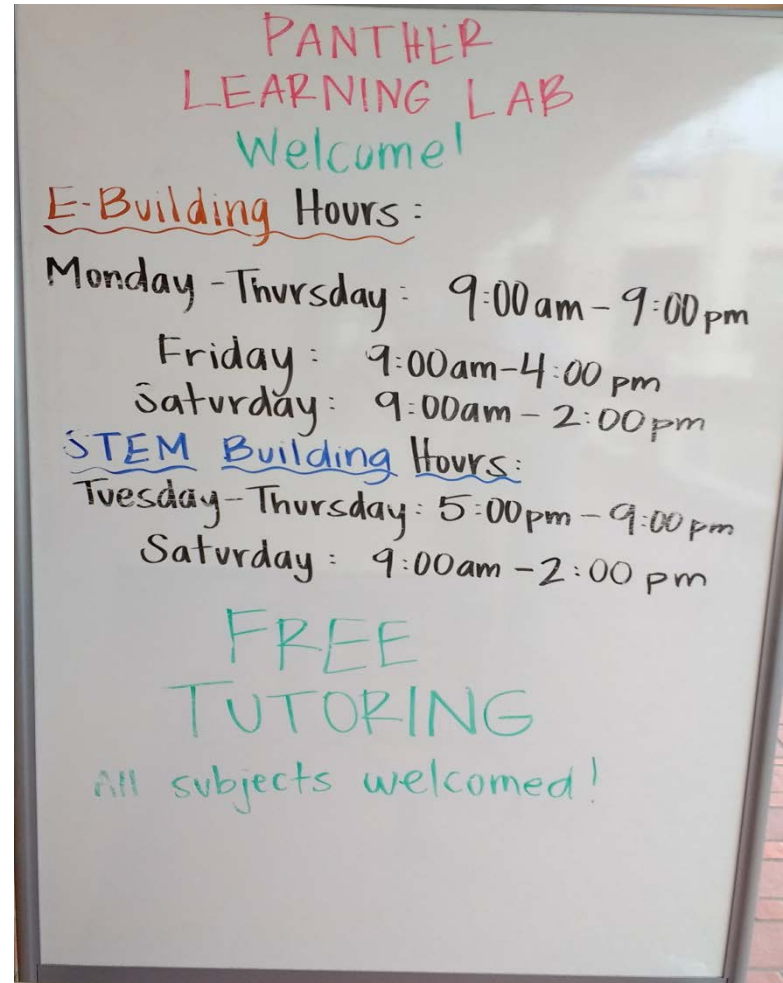 PANTHER
LEARNING LAB
Welcome!
E-Building Hours:
Monday-Thursday: 9:00am-9:00pm
Friday: 9:00am-4:00pm
Saturday: 9:00am-2:00pm
STEM Building Hours:
Tuesday-Thursday: 5:00pm-9:00pm
Saturday: 9:00am-2:00pm
FREE
TUTORING
All subjects welcomed!